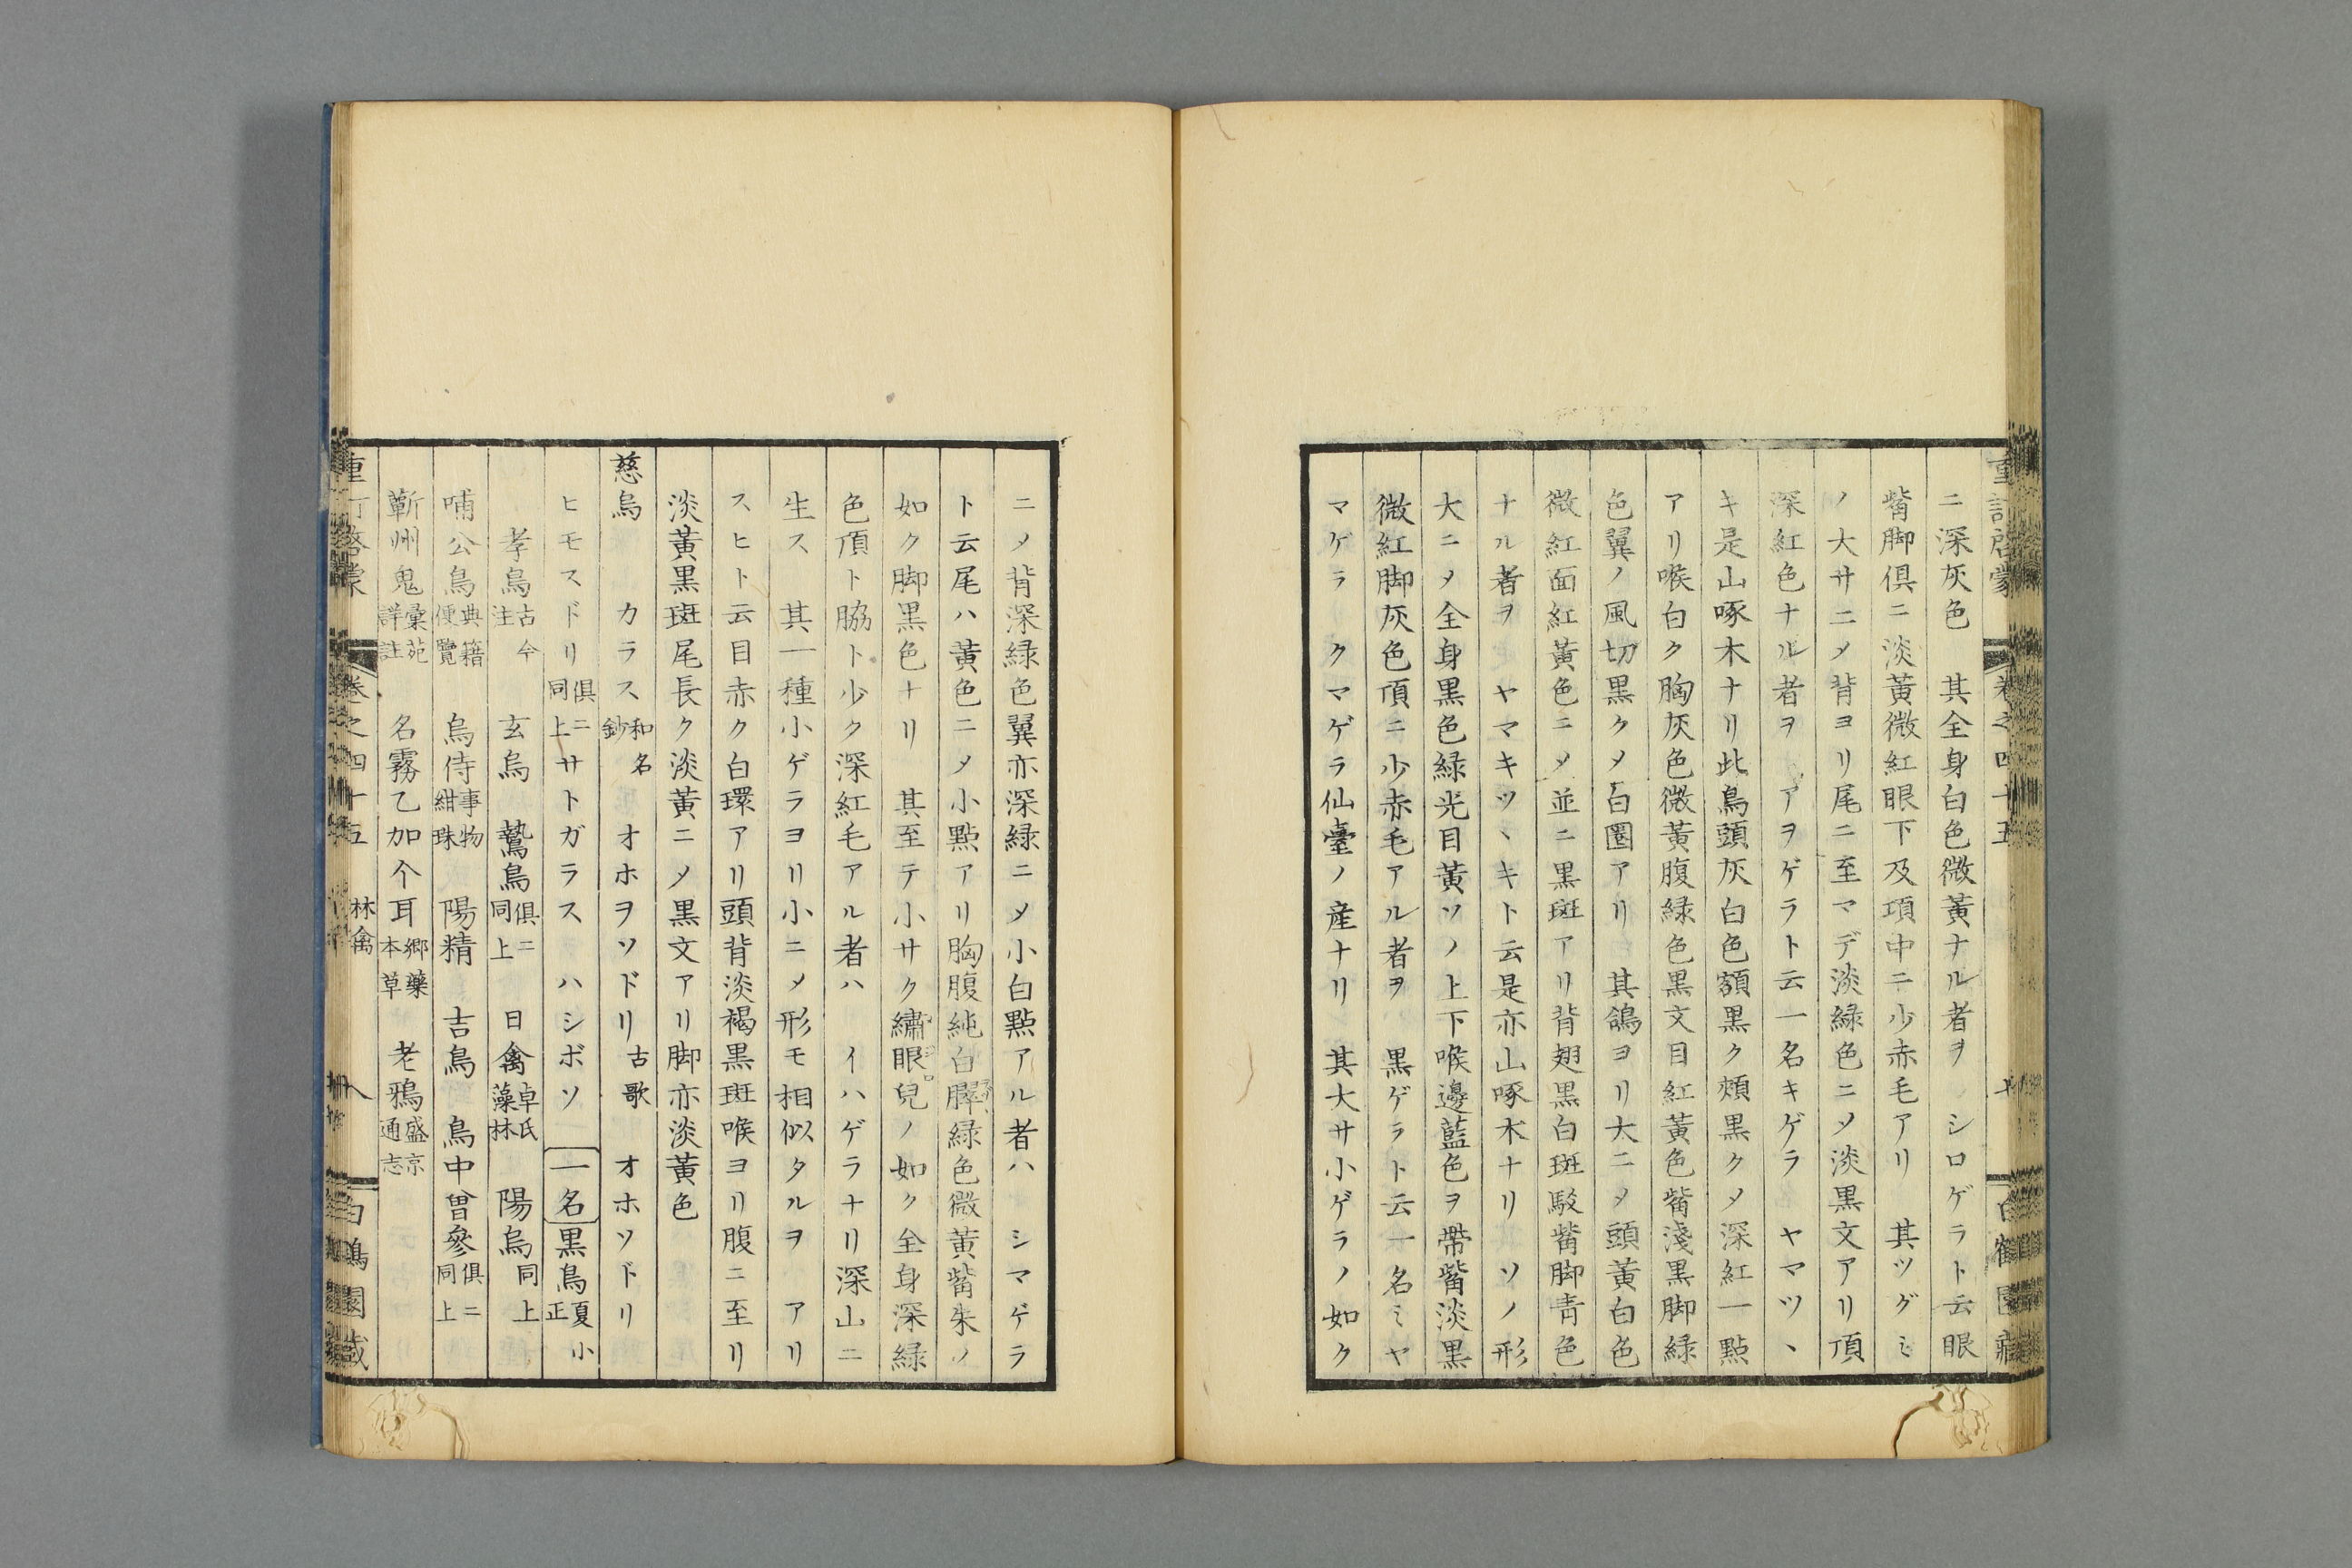 重訂啓蒙 卷之四十五 七
ニ深灰色 其全身白色微黃ナル者ヲ シロゲラト云眼
觜脚倶ニ淡黃微紅眼下及項中ニ少赤毛アリ 其ツグミ
ノ大サニメ背ヨリ尾ニ至マデ淡緑色ニメ淡黒文アリ頂
深紅色ナル者ヲ アヲゲラト云一名キゲラ ヤマツヽ
キ是山啄木ナリ此鳥頭灰白色額黒ク頰黒クメ深紅一點
アリ喉白ク胸灰色微黃腹緑色黒文目紅黃色觜淺黒脚緑
色翼ノ風切黒クメ白圏アリ 其鴿ヨリ大ニメ頭黃白色
微紅面紅黃色ニメ並ニ黒斑アリ背翅黒白斑駁觜脚青色
ナル者ヲ ヤマキツヽキト云是亦山啄木ナリ ソノ形
大ニメ全身黒色緑光目黃ソノ上下喉邊藍色ヲ帶觜淡黒
微紅脚灰色頂ニ少赤毛アル者ヲ 黒ゲラト云一名ミヤ
マゲラ クマゲラ仙臺ノ産ナリ 其大サ小ゲラノ如ク
ニメ背深緑色翼亦深緑ニメ小白點アル者ハ シマゲラ
ト云尾ハ黃色ニメ小點アリ胸腹純白臎緑色微黃觜朱ノ
如ク脚黒色ナリ 其至テ小サク繡眼兒ノ如ク全身深緑
色頂ト脇ト少ク深紅毛アル者ハ イハゲラナリ深山ニ
生ス 其一種小ゲラヨリ小ニメ形モ相似タルヲ アリ
スヒト云目赤ク白環アリ頭背淡褐黒斑喉ヨリ腹ニ至リ
淡黃黒斑尾長ク淡黃ニメ黒文アリ脚亦淡黃色
慈烏 カラス 和名鈔 オホヲソドリ 古歌 オホソドリ
ヒモスドリ 倶ニ同上 サトガラス ハシボソ 一名 黒鳥 夏小正
孝烏 古今注 玄烏 鷙鳥 倶ニ同上 日禽 卓氏藻林 陽烏 同上
哺公烏 典籍便覽 烏侍 事物紺珠 陽精 吉鳥 鳥中曾參 倶ニ同上
蘄州鬼 彙苑詳註 名霧乙加个耳 郷藥本草 老鴉 盛京通志
重訂啓蒙 卷之四十五 林禽 八